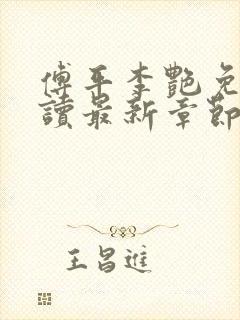 傅平李艷免
讀最新章節
王昌進